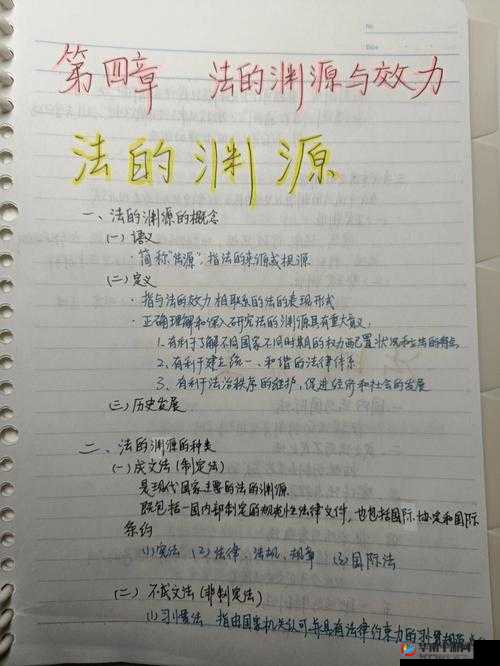 No
Date
第四章 法的渊源与效力
法的渊源
一、法的渊源的概念
(一) 语义
·简称"法源",指法的来源或根源
(二) 定义
·指与法的效力相联系的法的表现形式
·正确理解和深入研究法的渊源具有重大意义
1. 有利于了解不同国家不同时期的权力配置状况和立法的特点
2. 有利于建立统一、和谐的法律体系
3. 有利于法治秩序的维护,促进经济和社会的发展
(三) 历史发展
二、法的渊源的种类
(一) 成文法(制定法)
是现代国家主要的法的渊源
既包括一国内部制定的规范性法律文件,也包括国际协定和国际
条约
(1) 宪法 (2) 法律、法规、规章 (3) 国际法
(二) 不成文法(非制定法)
(1) 习惯法 指由国家机关认可并具有法律约束力的习惯规范